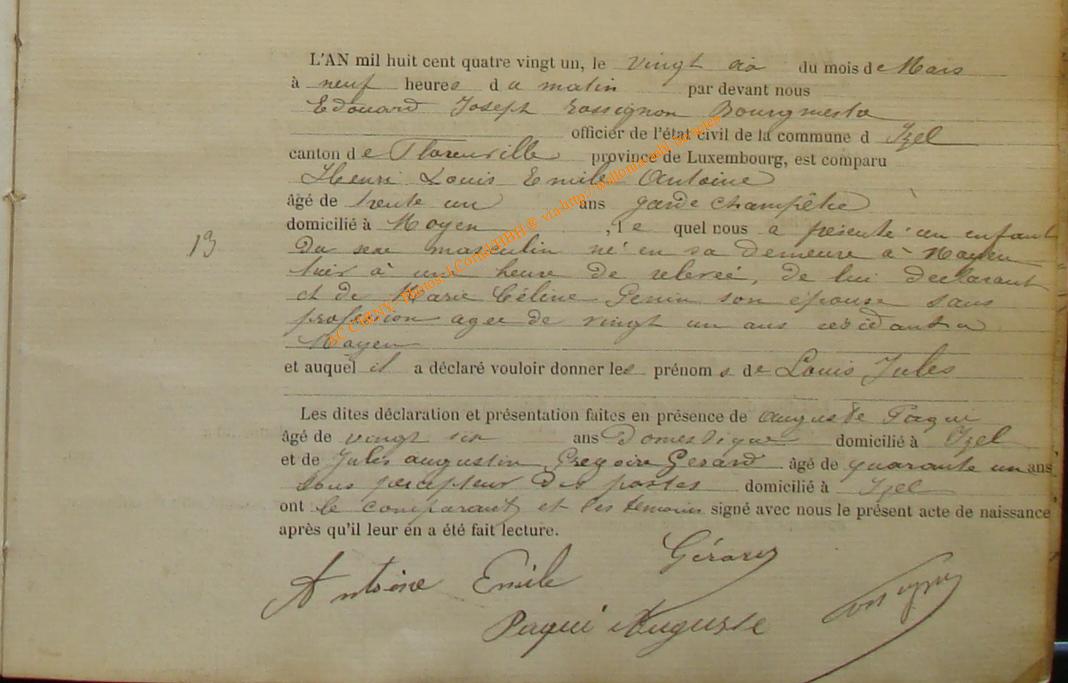 L'AN mil huit cent quatre vingt un, le vingt six du mois de Mars
à neuf heures du matin par devant nous
Edouard Joseph Rossignon Bourgmestre
officier de l'état civil de la commune d Izel
canton de Florenville province de Luxembourg, est comparu
Henri Louis Emile Antoine
âgé de trente un ans garde champêtre
domicilié à Moyen , le quel nous a présenté un enfant
13
du sexe masculin né en sa demeure à Moyen
hier à une heure de relevée, de lui declarant
et de Marie Céline Genin son épouse sans
profession agée de vingt un ans résidant a
Moyen
et auquel il a déclaré vouloir donner les prénoms de Louis Jules
Les dites déclaration et présentation faites en présence de Auguste Paqui
âgé de vingt six ans Domestique domicilié à Izel
et de Jules Augustin Gregoire Gerard âgé de quarante un ans
sous percepteur des postes domicilié à Izel
ont le comparant et les témoins signé avec nous le présent acte de naissance
après qu'il leur en a été fait lecture.
Gérard
Antoine Emile
Paqui Auguste